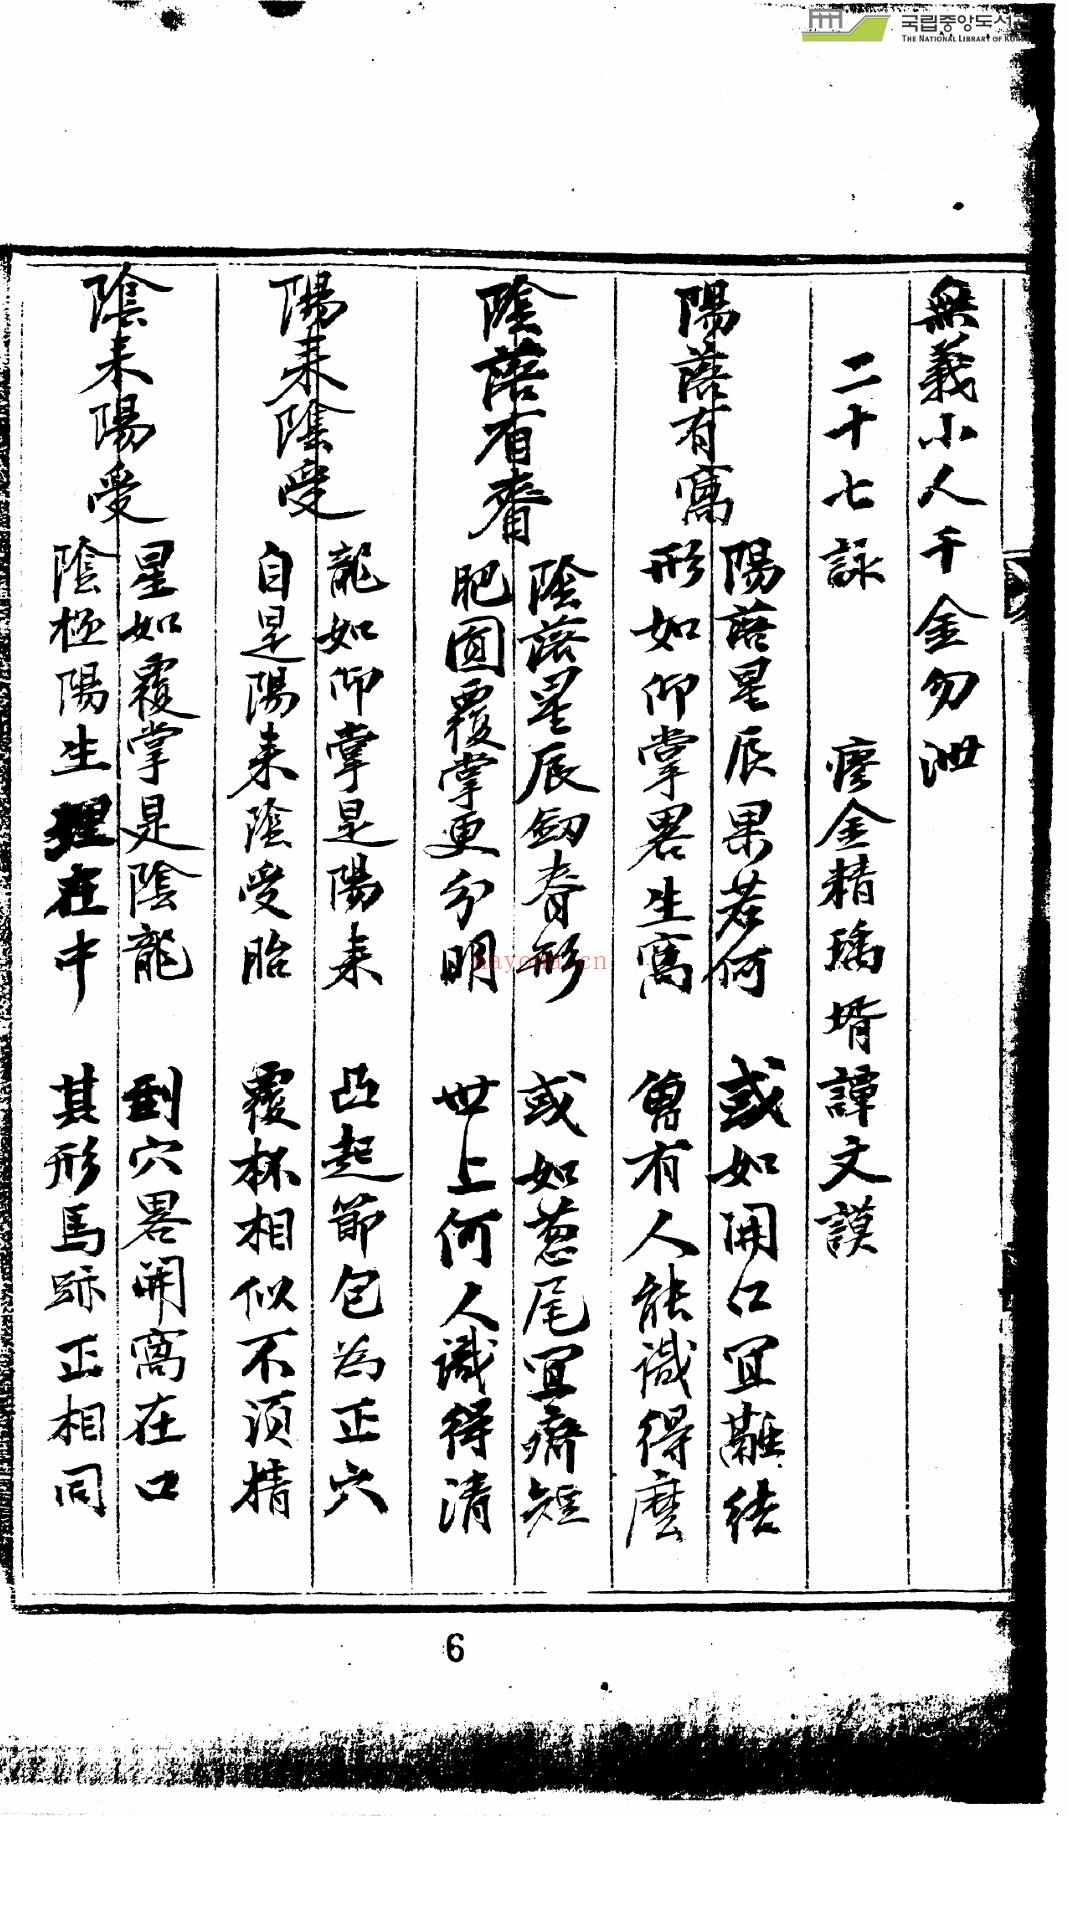 국립중앙도서관
THE NATIONAL LIBRARY OF KOREA
無義小人千金勿泄
二十七詠 廖金精瑀壻譚文謨
陽落有窩
陽落星辰果若何 或如開口宜難結
形如仰掌畧生窩 曾有人能識得麽
陰落有脊
陰落星辰劔脊形 或如葱尾宜齊短
肥圓覆掌更分明 世上何人識得清
陽来陰受
龍如仰掌是陽来 凸起節包為正穴
自是陽来陰受胎 覆杯相似不須精
陰来陽受
星如覆掌是陰龍 到穴畧開窩在口
陰極陽生理在中 其形馬跡正相同
nayona.cn
6